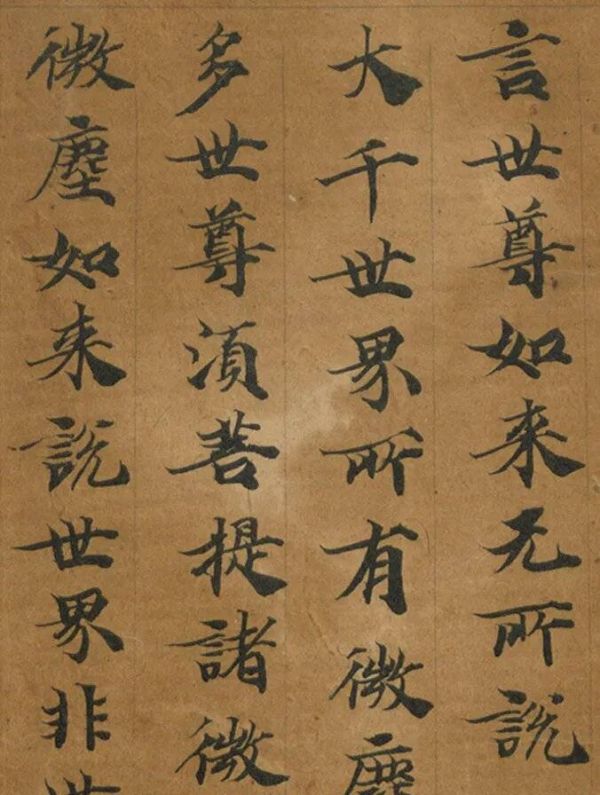 言世尊如来无所說
大千世界所有微塵
多世尊湏菩提諸微
微塵如来說世界非世